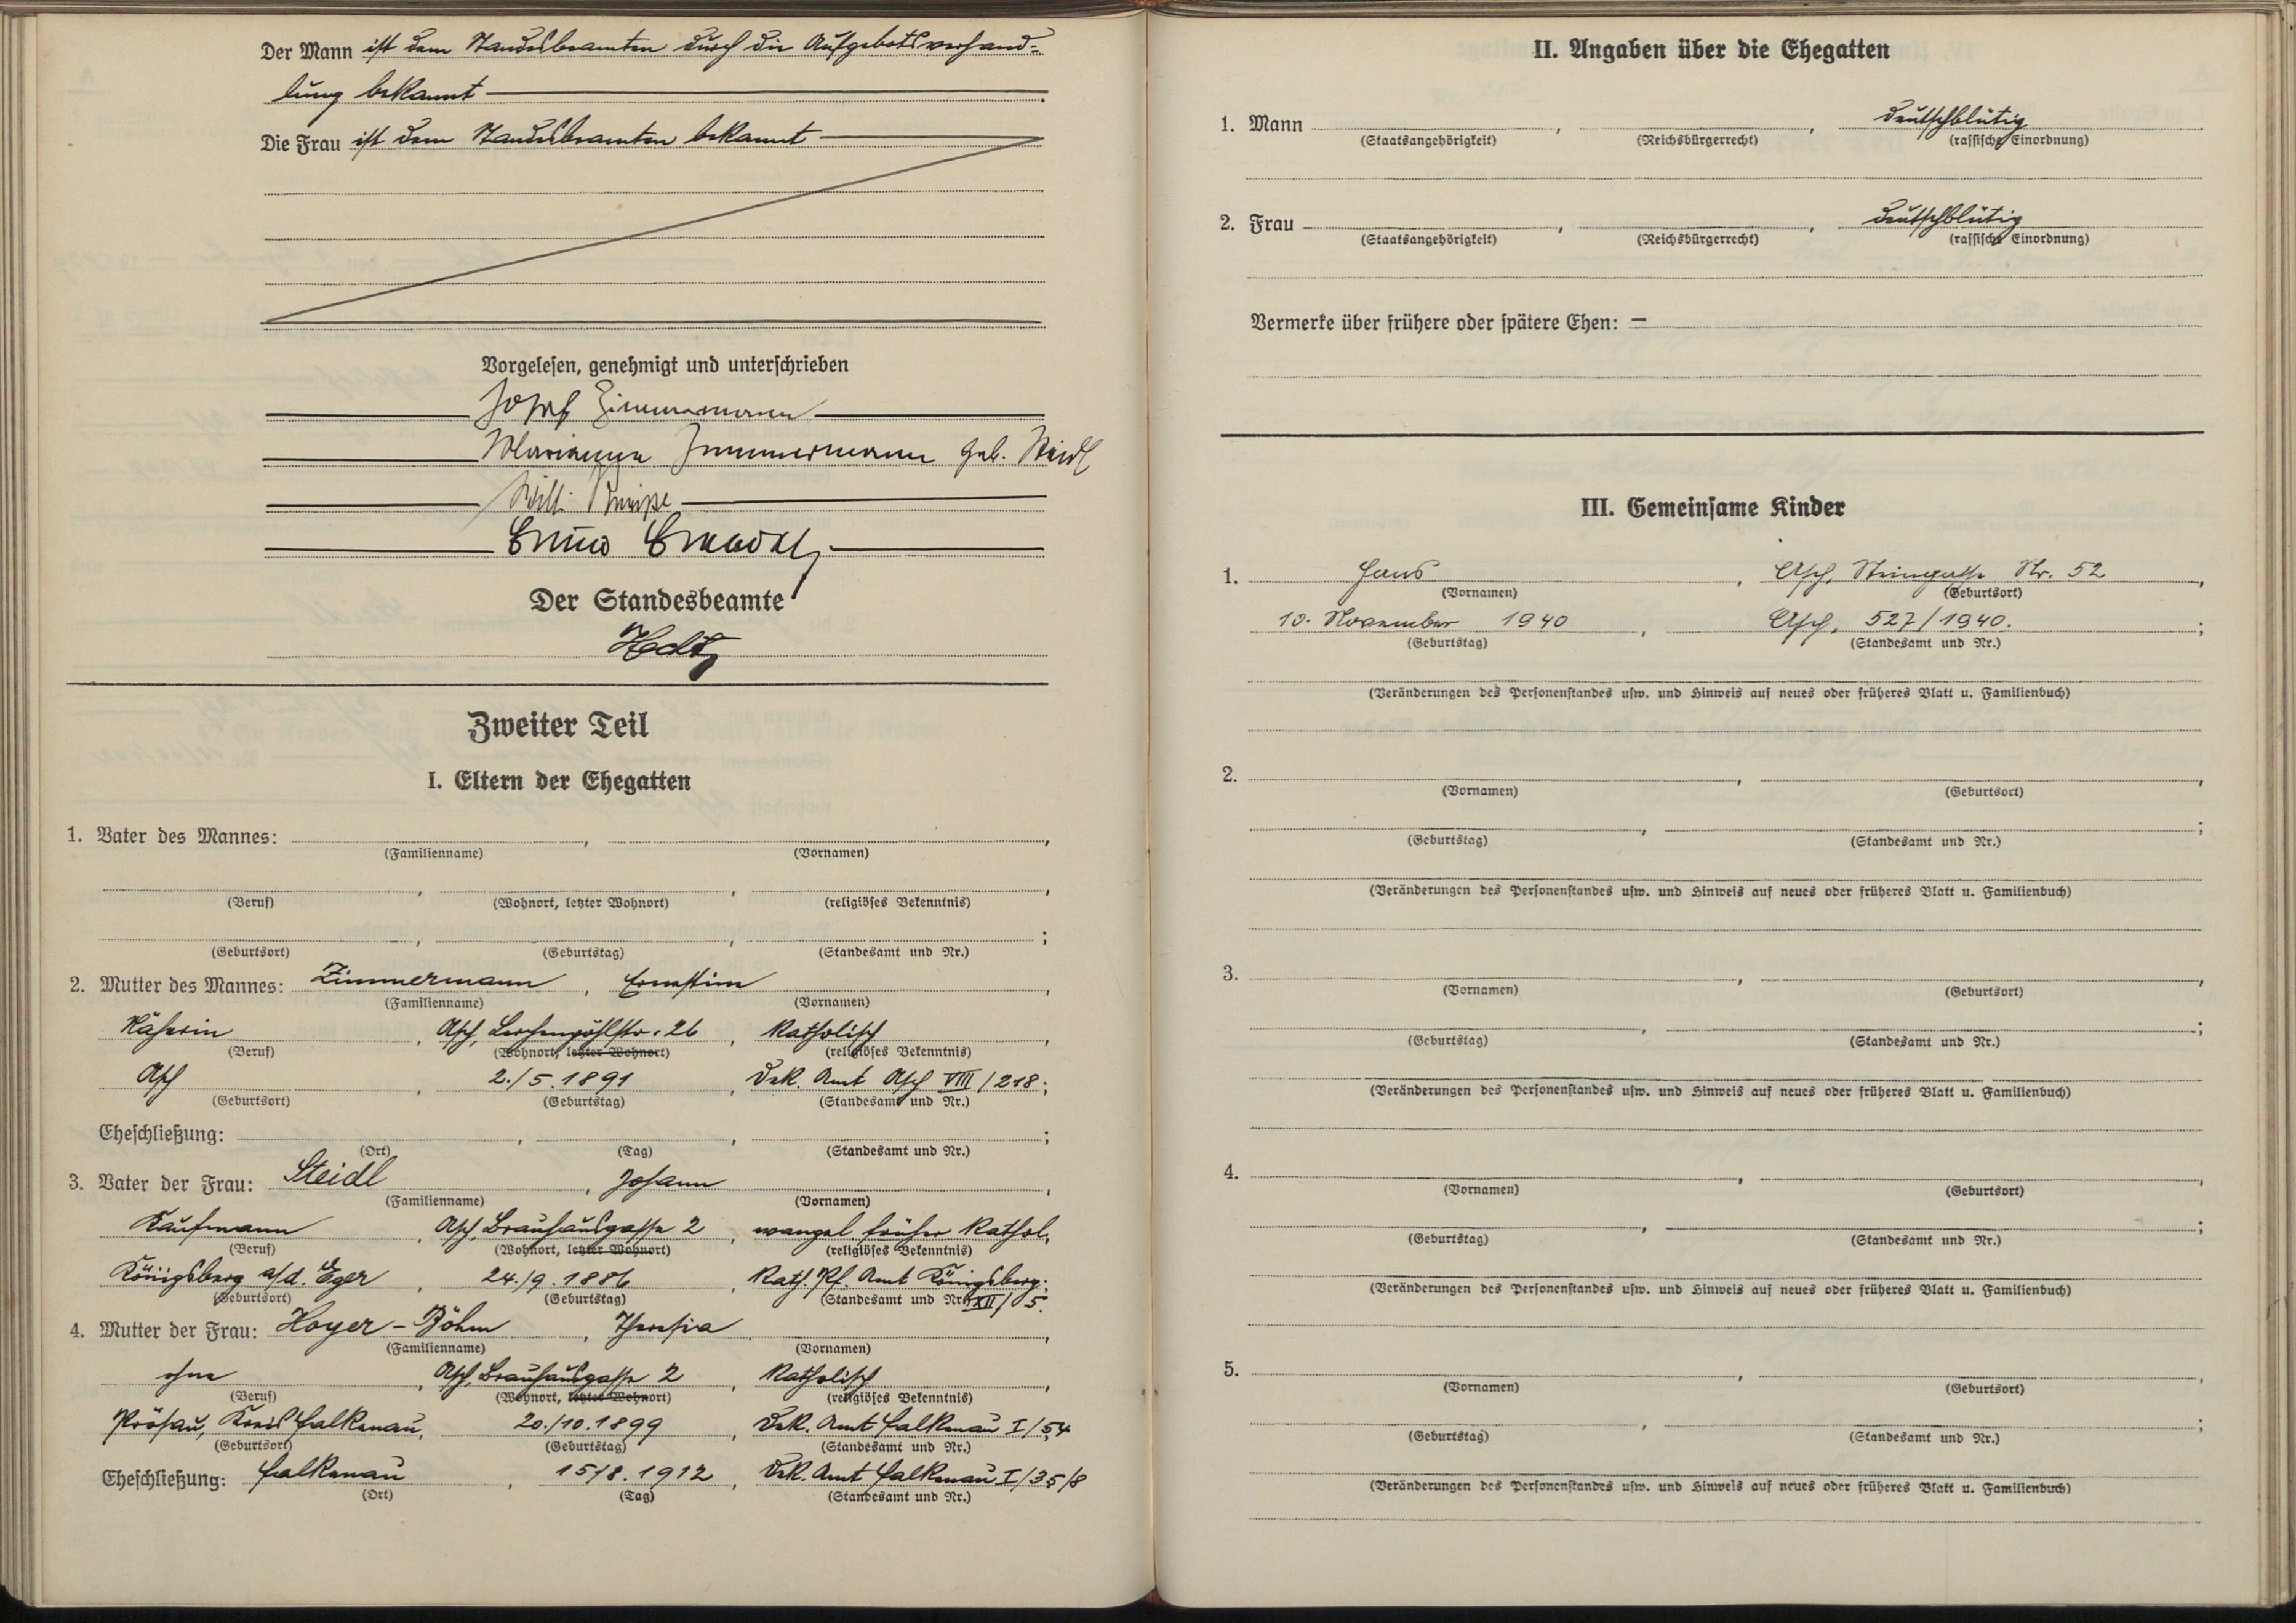 Der Mann ist dem Standesbeamten durch die Aufgebotsverhand-
lung bekannt
Die Frau ist dem Standesbeamten bekannt
Vorgelesen, genehmigt und unterschrieben
Josef Zimmermann
Marianne Zimmermann geb. Steidl
Willi
Der Standesbeamte
Zweiter Teil
I. Eltern der Ehegatten
1. Vater des Mannes:
(Familienname) (Vornamen)
(Beruf) (Wohnort, letzter Wohnort) (religiöses Bekenntnis)
(Geburtsort) (Geburtstag) (Standesamt und Nr.)
2. Mutter des Mannes: Zimmermann, Ernestine
(Familienname) (Vornamen)
Näherin, Asch, Lerchenpöhlstr. 26, Katholisch,
(Beruf) (Wohnort, letzter Wohnort) (religiöses Bekenntnis)
Asch, 2./5.1891, Dek. Amt Asch VIII/218;
(Geburtsort) (Geburtstag) (Standesamt und Nr.)
Eheschließung:
(Ort) (Tag) (Standesamt und Nr.)
3. Vater der Frau: Steidl, Johann,
(Familienname) (Vornamen)
Kaufmann, Asch, Brauhausgasse 2, evangel. früher Kathol.,
(Beruf) (Wohnort, letzter Wohnort) (religiöses Bekenntnis)
Königsberg a/d. Eger, 24./9.1886, Kath. Pf. Amt Königsberg;
(Geburtsort) (Geburtstag) (Standesamt und Nr.) /5.
4. Mutter der Frau: Hoyer-Böhm, Theresia,
(Familienname) (Vornamen)
ohne, Asch, Brauhausgasse 2, Katholisch,
(Beruf) (Wohnort, letzter Wohnort) (religiöses Bekenntnis)
Prösau, Kreis Falkenau, 20./10.1899, Dek. Amt Falkenau I/54
(Geburtsort) (Geburtstag) (Standesamt und Nr.)
Eheschließung: Falkenau, 15/8.1912, Dek. Amt Falkenau I/35/8
(Ort) (Tag) (Standesamt und Nr.)
II. Angaben über die Ehegatten
1. Mann, , deutschblütig
(Staatsangehörigkeit) (Reichsbürgerrecht) (rassische Einordnung)
2. Frau, , deutschblütig
(Staatsangehörigkeit) (Reichsbürgerrecht) (rassische Einordnung)
Vermerke über frühere oder spätere Ehen: –
III. Gemeinsame Kinder
1. Hans, Asch, Steingasse Nr. 52,
(Vornamen) (Geburtsort)
10. November 1940, Asch, 527/1940.;
(Geburtstag) (Standesamt und Nr.)
(Veränderungen des Personenstandes usw. und Hinweis auf neues oder früheres Blatt u. Familienbuch)
2.
(Vornamen) (Geburtsort)
(Geburtstag) (Standesamt und Nr.)
(Veränderungen des Personenstandes usw. und Hinweis auf neues oder früheres Blatt u. Familienbuch)
3.
(Vornamen) (Geburtsort)
(Geburtstag) (Standesamt und Nr.)
(Veränderungen des Personenstandes usw. und Hinweis auf neues oder früheres Blatt u. Familienbuch)
4.
(Vornamen) (Geburtsort)
(Geburtstag) (Standesamt und Nr.)
(Veränderungen des Personenstandes usw. und Hinweis auf neues oder früheres Blatt u. Familienbuch)
5.
(Vornamen) (Geburtsort)
(Geburtstag) (Standesamt und Nr.)
(Veränderungen des Personenstandes usw. und Hinweis auf neues oder früheres Blatt u. Familienbuch)